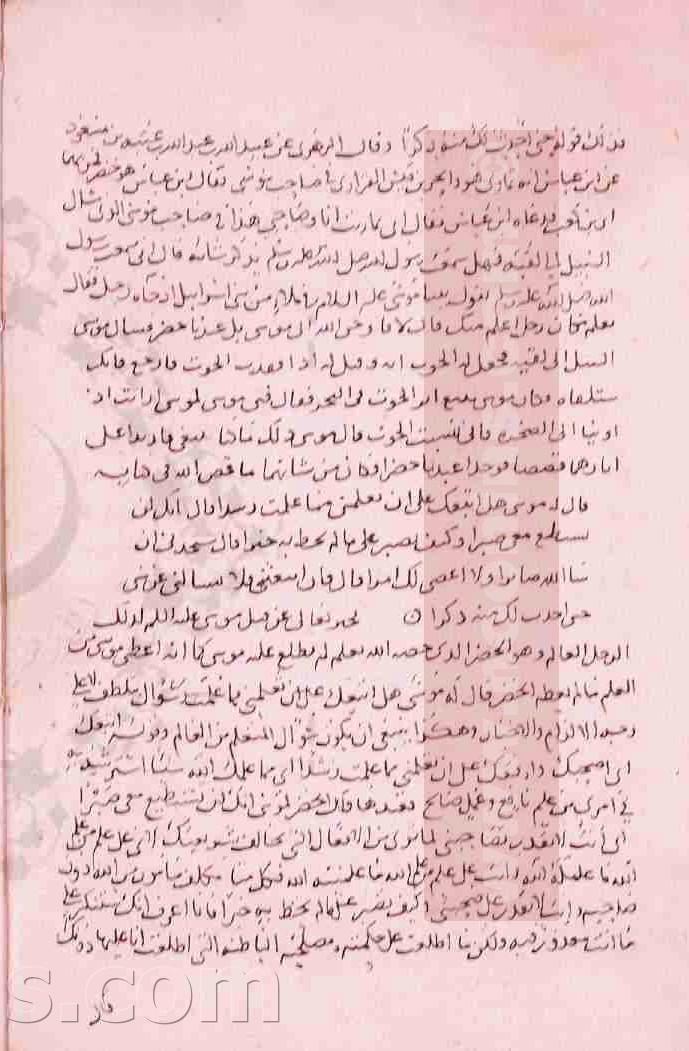 فذلك قوله حتى أحدث لك منه ذكرا وقال الزهري عن عبيد الله بن عبد الله بن عتبة بن مسعود
عن ابن عباس انه تمارى هو والحر بن قيس الفزاري في صاحب موسى فقال ابن عباس هو خضر فمر بهما
ابي بن كعب فدعاه ابن عباس فقال اني تماريت انا وصاحبي هذا في صاحب موسى الذي سال
السبيل الى لقيه فهل سمعت رسول الله صلى الله عليه وسلم يذكر شانه قال اني سمعت رسول
الله صلى الله عليه وسلم يقول بينا موسى عليه السلام في ملا من بني اسرائيل اذ جاه رجل فقال
تعلم مكان رجل اعلم منك قال لا فاوحى الله الى موسى بل عبدنا خضر فسال موسى
السبيل الى لقيه فجعل له الحوت اية وقيل له اذا فقدت الحوت فارجع فانك
ستلقاه فكان موسى يتبع اثر الحوت في البحر فقال فتى موسى لموسى ارايت اذ
اوينا الى الصخرة فاني نسيت الحوت قال موسى ذلك ما كنا نبغي فارتدا على
اثارهما قصصا فوجدا عبدنا خضرا فكان من شانهما ما قص الله في كتابه
قال له موسى هل اتبعك على ان تعلمن مما علمت رشدا قال انك لن
تستطيع معي صبرا وكيف تصبر على ما لم تحط به خبرا قال ستجدني ان
شا الله صابرا ولا اعصي لك امرا قال فان اتبعتني فلا تسالني عن شي
حتى احدث لك منه ذكرا ○ يخبر تعالى عن قيل موسى عليه السلام لذلك
الرجل العالم وهو الخضر الذي خصه الله بعلم لم يطلع عليه موسى كما انه اعطى موسى من
العلم ما لم يعطه الخضر قال له موسى هل اتبعك على ان تعلمني مما علمت سؤال تلطف لا على
وجه الالزام والاجبار وهكذا ينبغي ان يكون سؤال المتعلم من العالم وقوله اتبعك
اي اصحبك وارافقك على ان تعلمني مما علمت رشدا اي مما علمك الله شيئا استرشد به
في امري من علم نافع وعمل صالح فعندها قال الخضر لموسى انك لن تستطيع معي صبرا
اي أنت لا تقدر تصاحبني لما ترى من الافعال التي تخالف شريعتك اني على علم من علم
الله ما علمكه الله وانت على علم من علم الله ما علمنيه الله فكل منا مكلف بامور من الله دون
صاحبه وانت لا تقدر على صحبتي وكيف تصبر على ما لم تحط به خبرا فانا اعرف انك ستنكر علي
ما انت معذور فيه ولكن ما اطلعت على حكمته ومصلحته الباطنة التي اطلعت انا عليها دونك
قال
s.com